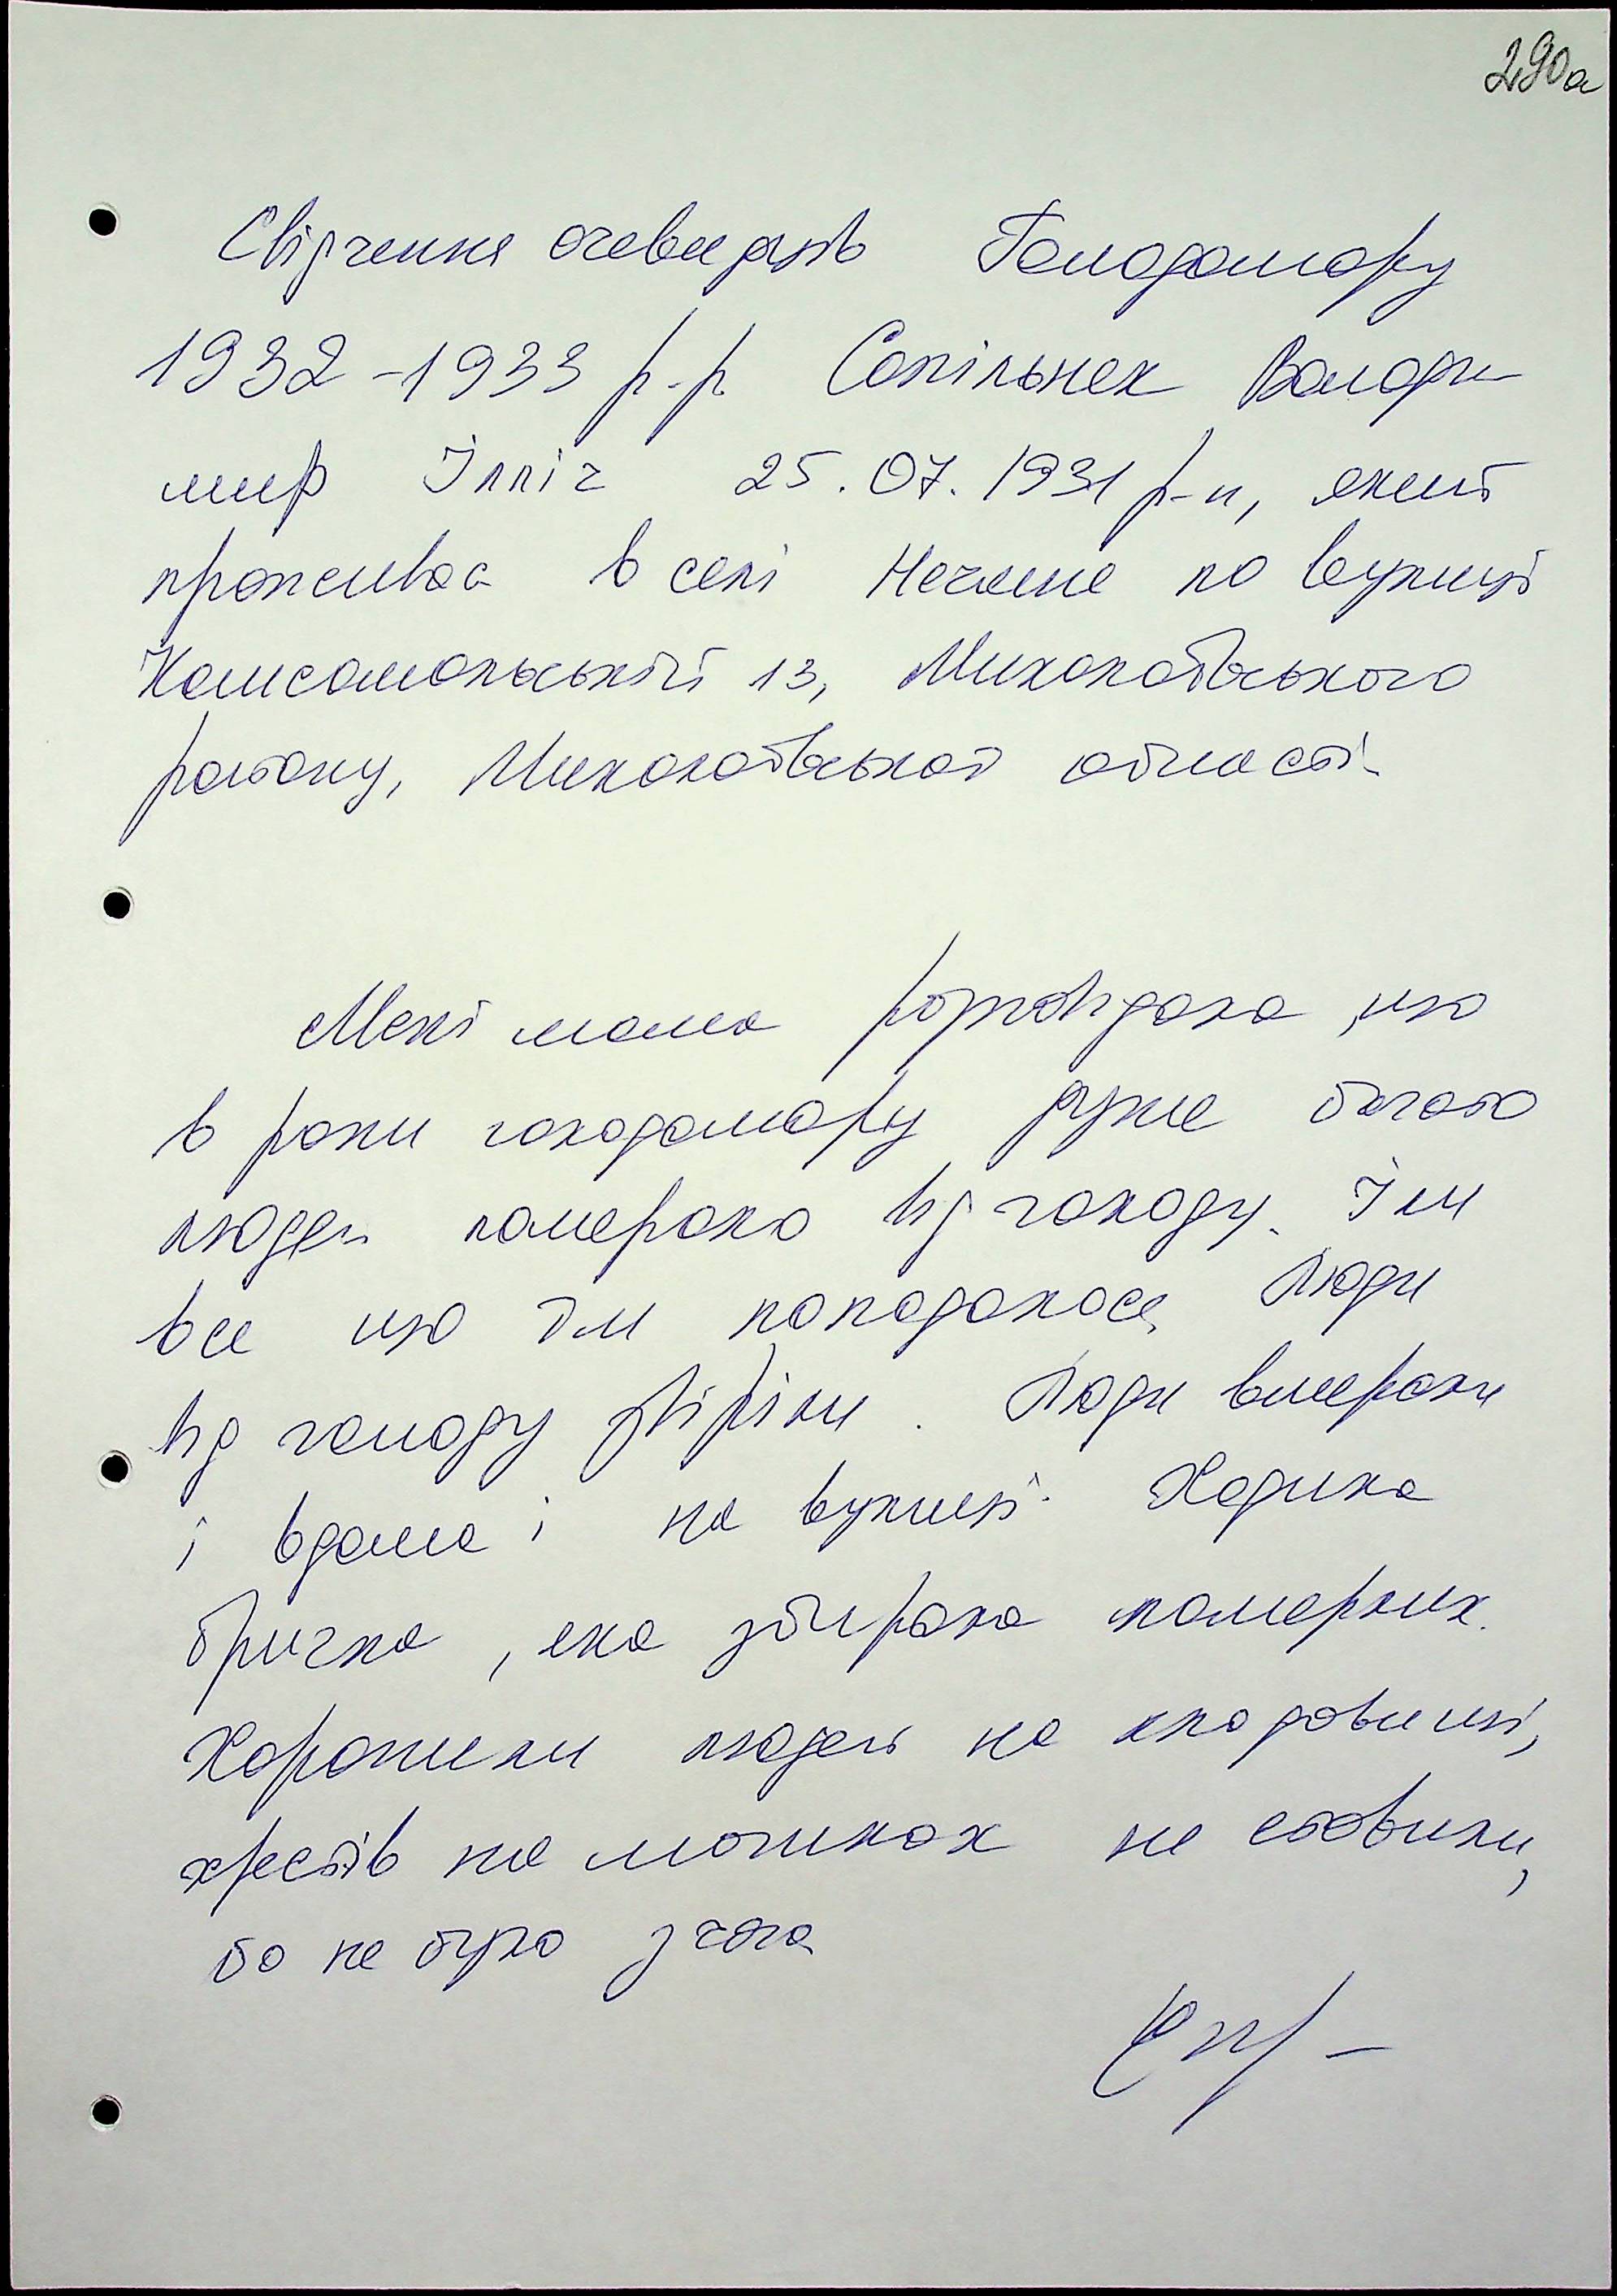 290а
Свідчення очевидців Голодомору
1932-1933 р.р Сопільнек Володи
мир Ілліч 25.07.1931 р-н, який
проживає в селі Нечаяне по вулиці
Комсомольській 13, Миколаївського
району, Миколаївської області.
Мені мама розповідала, що
в роки голодомору дуже багато
людей померало від голоду. Їли
все що їм попадалося, Люди
від голоду звіріли. Люди вмерали
і вдома і на вулиці. Ходила
бричка, яка збирала померлих.
Хоронили людей на кладовищі,
хрестів на могилах не ставили,
бо не було з чого